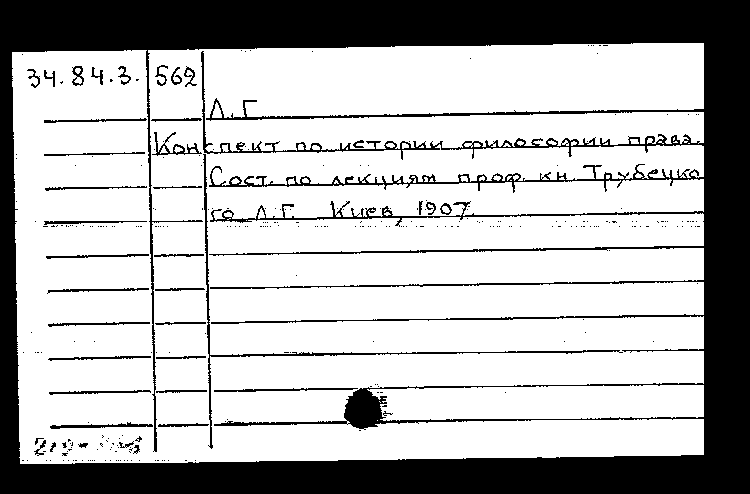 34.84.3. 562
Л.Г
Конспект по истории философии права.
Сост. по лекциям проф. кн. Трубецко
го Л.Г. Киев, 1907.